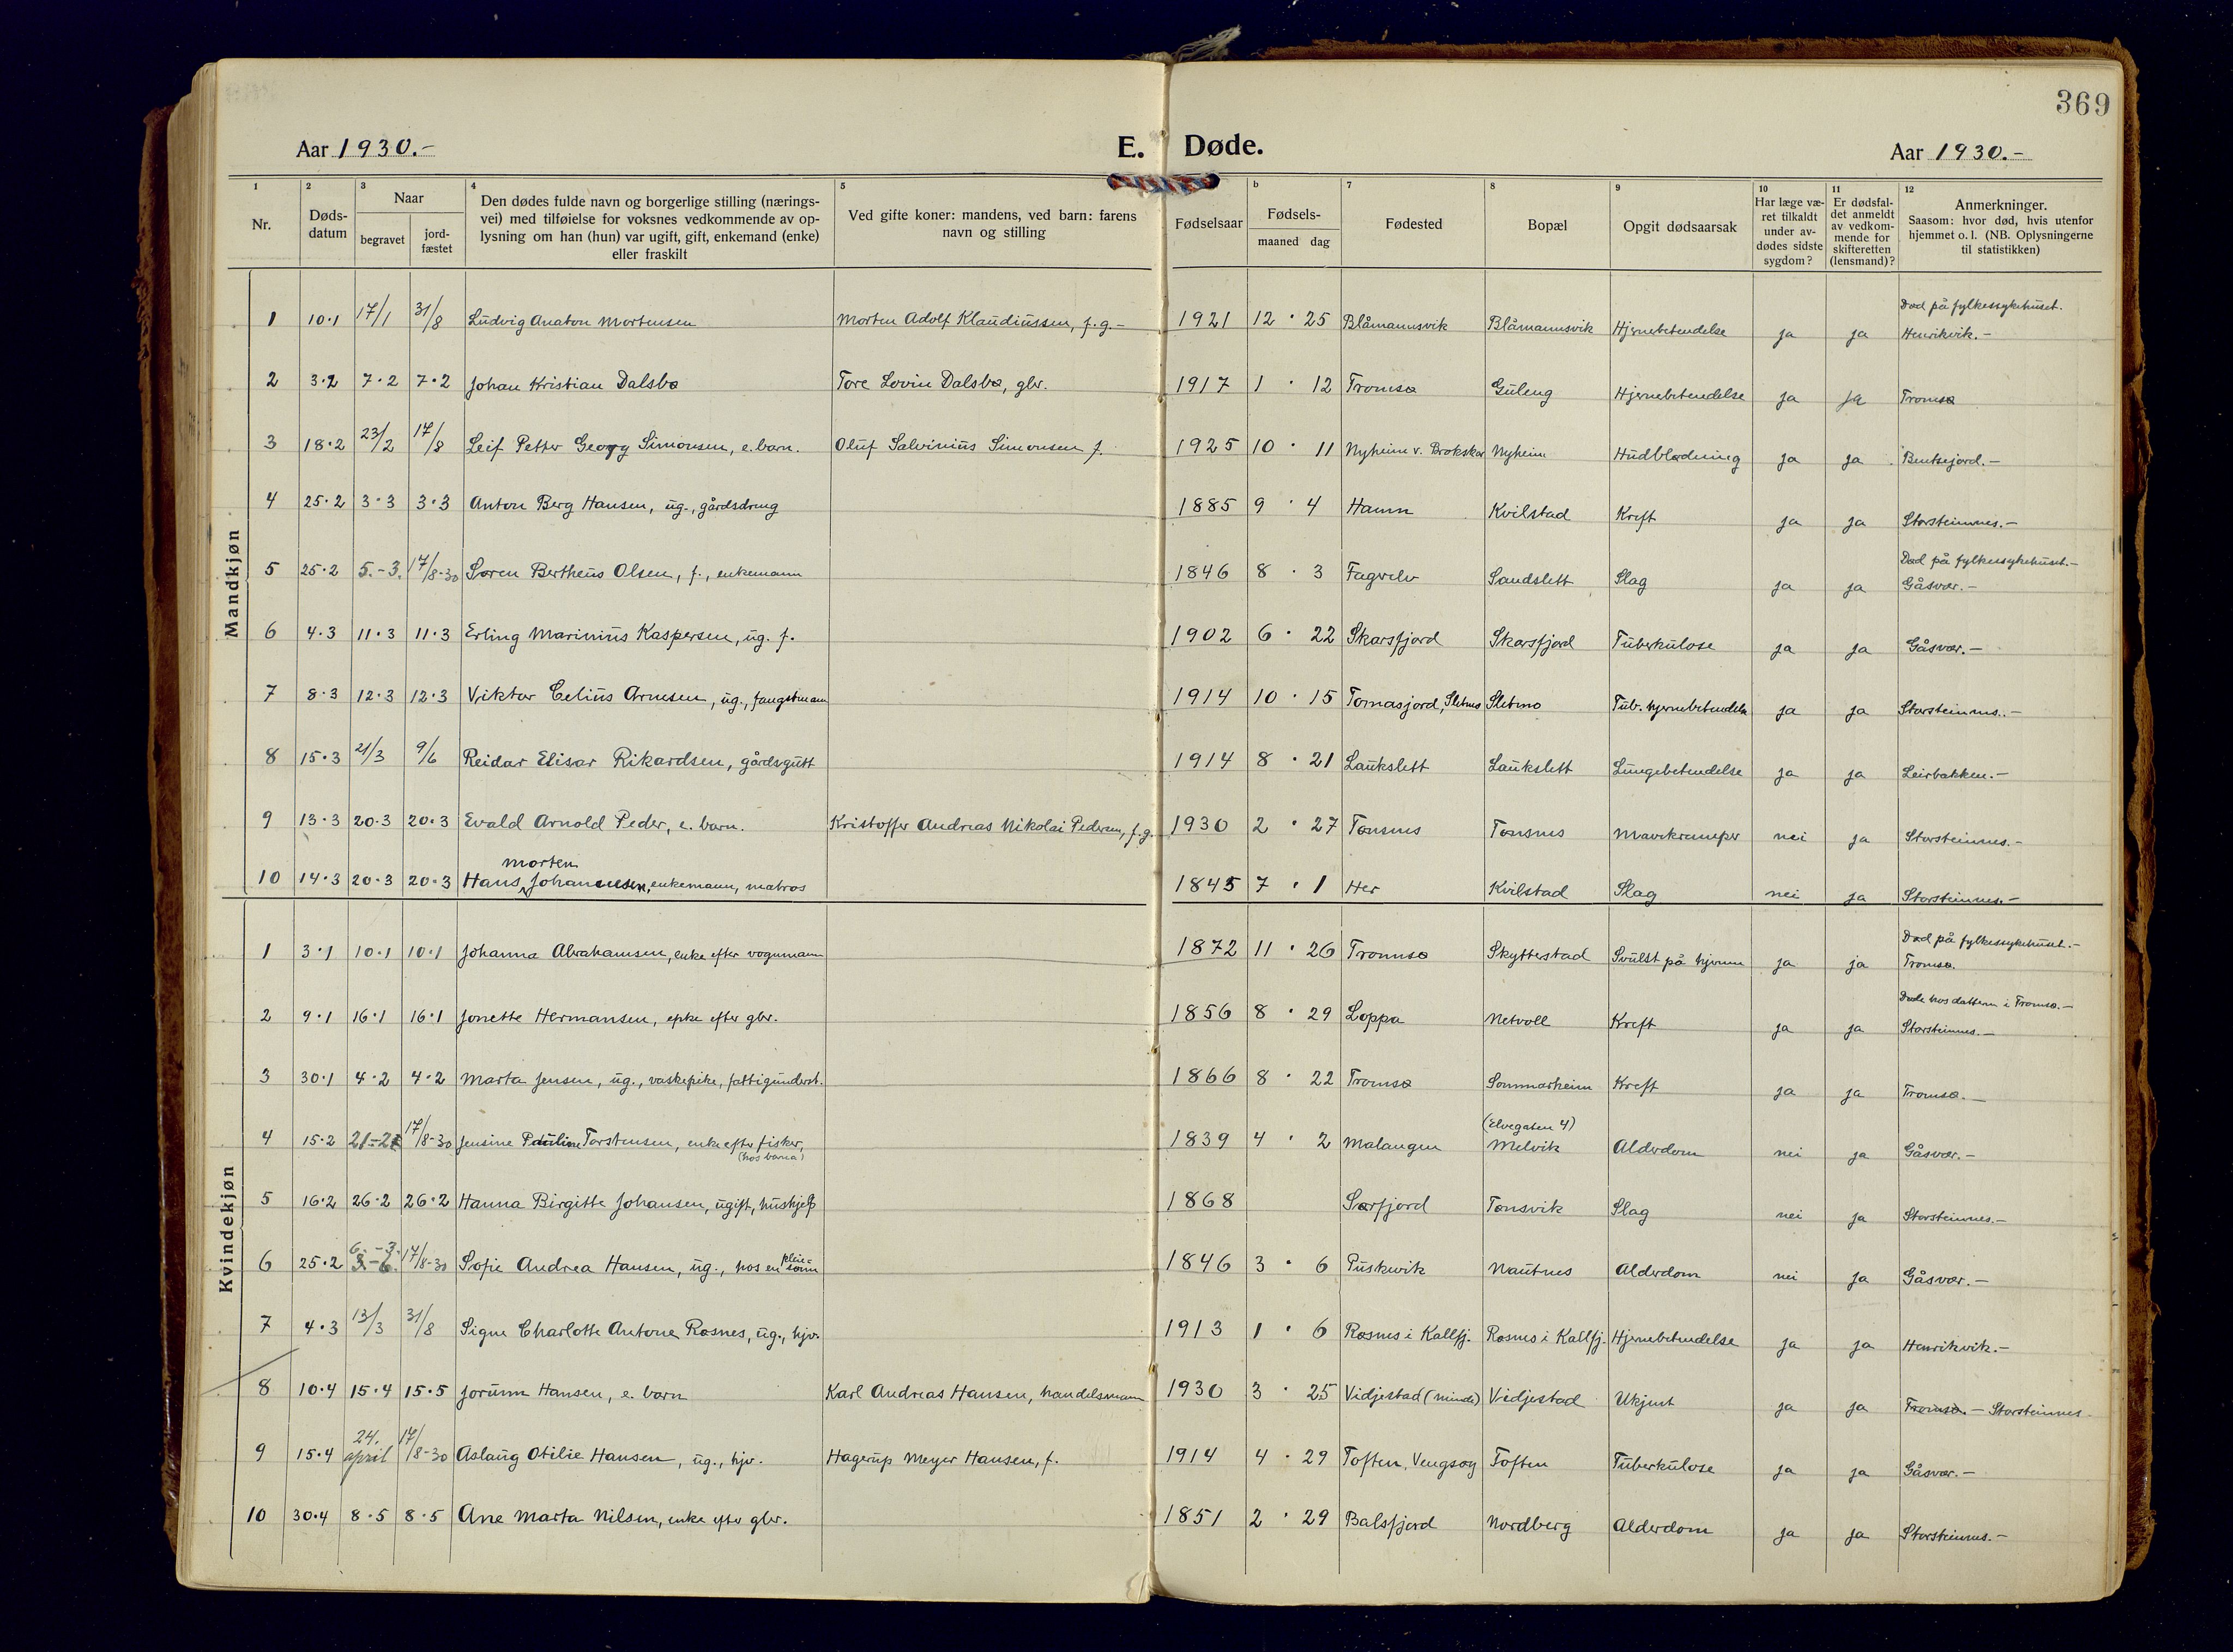 369
Aar 1930.-
E. Døde.
Aar 1930.-
1 2 3 4 5 b 7 8 9 10 11 12
Nr.
Døds-
datum
Naar
begravet
jord-
fæstet
Den dødes fulde navn og borgerlige stilling (nærings-
vei) med tilføielse for voksnes vedkommende av op-
lysning om han (hun) var ugift, gift, enkemand (enke)
eller fraskilt
Ved gifte koner: mandens, ved barn: farens
navn og stilling
Fødselsaar
Fødsels-
maaned dag
Fødested
Bopæl
Opgit dødsaarsak
Har læge væ-
ret tilkaldt
under av-
dødes sidste
sygdom?
Er dødsfal-
det anmeldt
av vedkom-
mende for
skifteretten
(lensmand)?
Anmerkninger.
Saasom: hvor død, hvis utenfor
hjemmet o. l. (NB. Oplysningerne
til statistikken)
Mandkjøn
Død på fylkessykehuset.
1 10·1 17/1 31/8 Ludvig Anaton Mortensen Morten Adolf Klaudiussen, f. g.- 1921 12 · 25 Blåmannsvik Blåmannsvik Hjernebetendelse ja ja Henrikvik.-
2 3·2 7·2 7·2 Johan Kristian Dalsbø Tore Lovin Dalsbø, gbr. 1917 1 · 12 Tromsø Guleng Hjernebetendelse ja ja Tromsø
3 18·2 23/2 17/8 Leif Petter Georg Simonsen, e. barn. Oluf Salvinius Simonsen f. 1925 10 · 11 Nyheim v. Brokskar Nyheim Hudblødning ja ja Bentsjord.-
4 25·2 3·3 3·3 Anton Berg Hansen, ug., gårdsdreng 1885 9 · 4 Hamn Kvilstad Kreft ja ja Storsteinnes.-
Død på fylkessykehuset.-
5 25·2 5.-3. 17/8-30 Søren Bertheus Olsen, f., enkemann 1846 8 · 3 Fagrelv Sandslett Slag ja ja Gåsvær.-
6 4·3 11·3 11·3 Erling Marinius Kaspersen, ug. f. 1902 6 · 22 Skarsfjord Skarsfjord Tuberkulose ja ja Gåsvær.-
7 8·3 12·3 12·3 Viktor Celius Arnesen, ug., fangstmann 1914 10 · 15 Tomasjord, Sletnes Sletmo Tub. hjernebetendelse ja ja Storsteinnes.-
8 15·3 21/3 9/6 Reidar Elisar Rikardsen, gårdsgutt 1914 8 · 21 Laukslett Laukslett Lungebetendelse ja ja Leirbakken.-
9 13·3 20·3 20·3 Evald Arnold Peder, e. barn. Kristoffer Andreas Nikolai Pedersen, f. g. 1930 2 · 27 Tønsnes Tønsnes Mavekramper nei ja Storsteinnes.-
Morten
10 14·3 20·3 20·3 Hans Johannesen, enkemann, matros 1845 7 · 1 Her Kvilstad Slag nei ja Storsteinnes.-
Kvindekjøn
Død på fylkessykehuset.-
1 3·1 10·1 10·1 Johanna Abrahamsen, enke efter vognmann 1872 11 · 26 Tromsø Skytterstad Svulst på hjernen ja ja Tromsø.
Døde hos datteren i Tromsø.-
2 9·1 16·1 16·1 Jonette Hermansen, enke efter gbr. 1856 8 · 29 Loppa Netvoll Kreft ja ja Storsteinnes.-
3 30·1 4·2 4·2 Marta Jensen, ug., vaskepike, fattigunderst. 1866 8 · 22 Tromsø Sommarheim Kreft ja ja Tromsø.-
(Elvegaten 4)
4 15·2 21.-2 17/8-30 Jensine Pauline Torstensen, enke efter fisker, 1839 4 · 2 Malangen Melvik Alderdom nei ja Gåsvær.-
(hos barna)
5 16·2 26·2 26·2 Hanna Birgitte Johansen, ugift, hushjelp 1868 Sørfjord Tønsvik Slag nei ja Storsteinnes.-
6 25·2 6.-3. 17/8-30 Sofie Andrea Hansen, ug., hos en pleiesønn 1846 3 · 6 Puskevik Nautnes Alderdom nei ja Gåsvær.-
7 4·3 13/3 31/8 Signe Charlotte Antone Røsnes, ug., hjv. 1913 1 · 6 Røsnes i Kallfj. Røsnes i Kallfj. Hjernebetendelse ja ja Henrikvik.-
8 10·4 15·4 15·5 Jorunn Hansen, e. barn Karl Andreas Hansen, handelsmann 1930 3 · 25 Vidjestad (Minde) Vidjestad Ukjent ja ja Tromsø.- Storsteinnes-
9 15·4 24. april 17/8-30 Aslaug Otilie Hansen, ug., hjv. Hagerup Meyer Hansen, f. 1914 4 · 29 Toften, Vengsøy Toften Tuberkulose ja ja Gåsvær.-
10 30·4 8·5 8·5 Ane Marta Nilsen, enke efter gbr. 1851 2 · 29 Balsfjord Nordberg Alderdom ja ja Storsteinnes.-